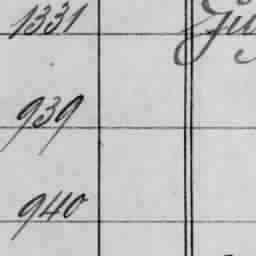 1331
939
940